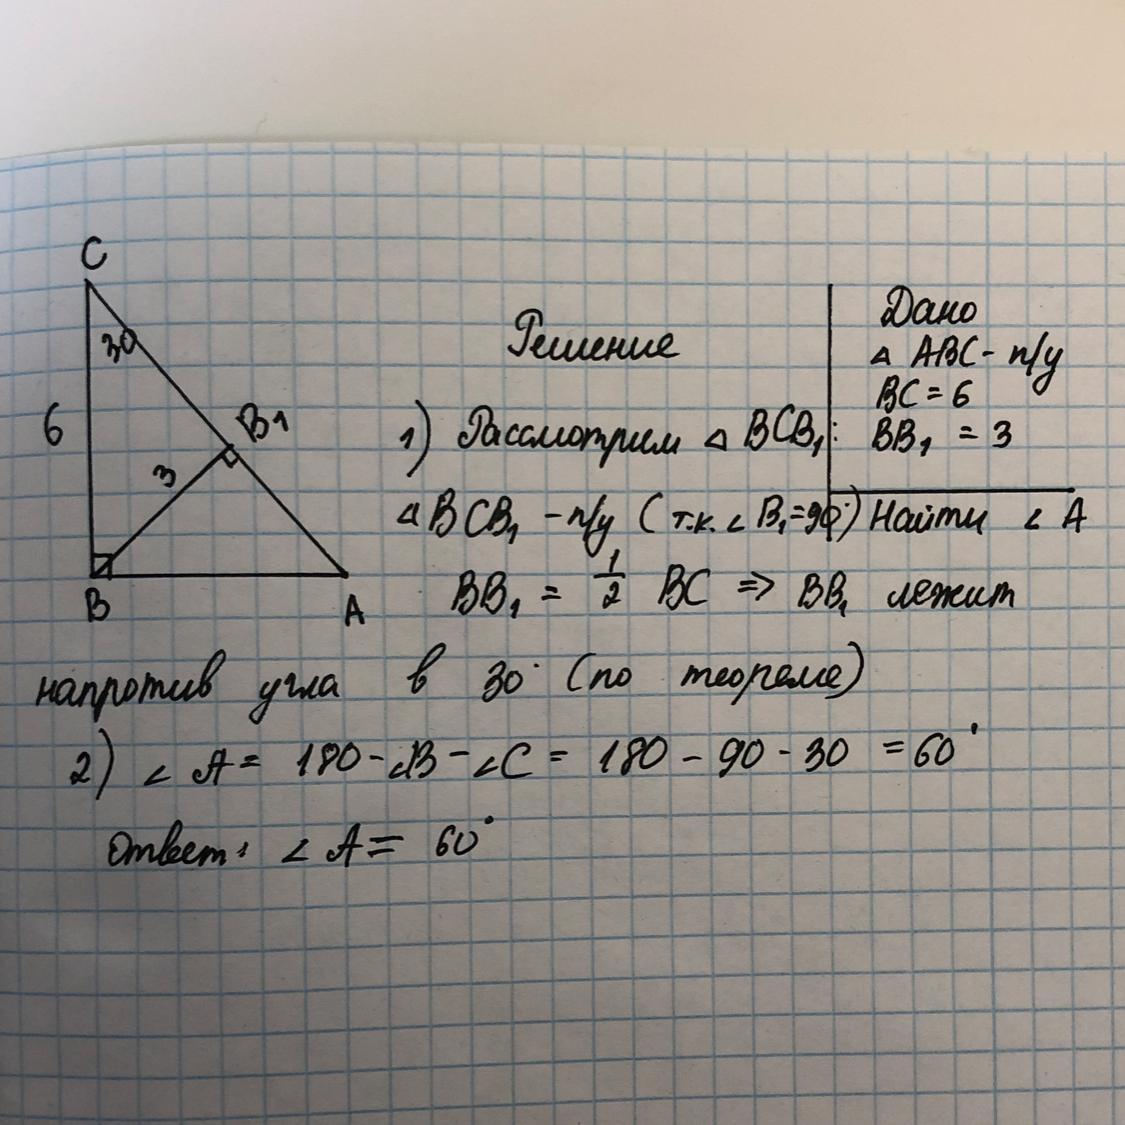 C
30
6
B1
3
B
A
Решение
Дано
△ ABC - п/у
BC = 6
BB₁ = 3
Найти ∠ A
1) Рассмотрим △ BCB₁:
△ BCB₁ - п/у (т.к. ∠ B₁=90°)
BB₁ = 1/2 BC => BB₁ лежит
напротив угла в 30° (по теореме)
2) ∠ A = 180 - ∠B - ∠C = 180 - 90 - 30 = 60°
Ответ: ∠ A = 60°